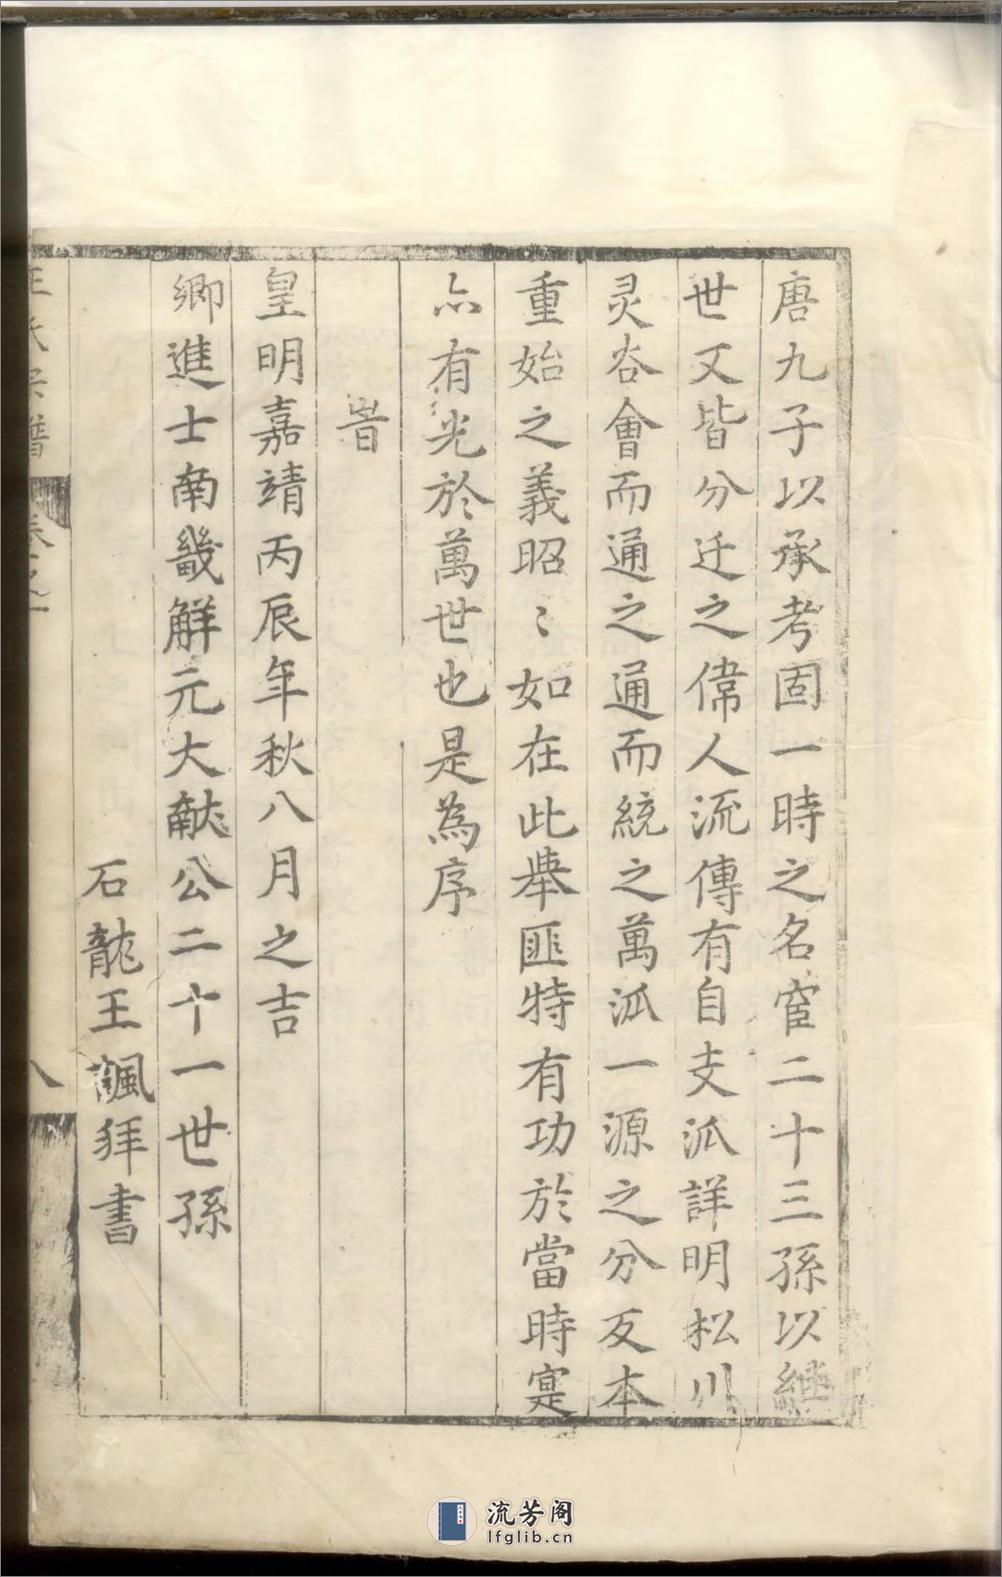 唐九子以承考固一時之名宦二十三孫以継
世又皆分迁之偉人流傳有自支派詳明松川
灵谷會而通之通而統之萬派一源之分反本
重始之義昭〻如在此舉匪特有功於當時寔
亦有光於萬世也是為序
旹
皇明嘉靖丙辰年秋八月之吉
鄉進士南畿解元大猷公二十一世孫
石龍王颿拜書
王氏宗譜 卷之一 八
流芳阁
lfglib.cn